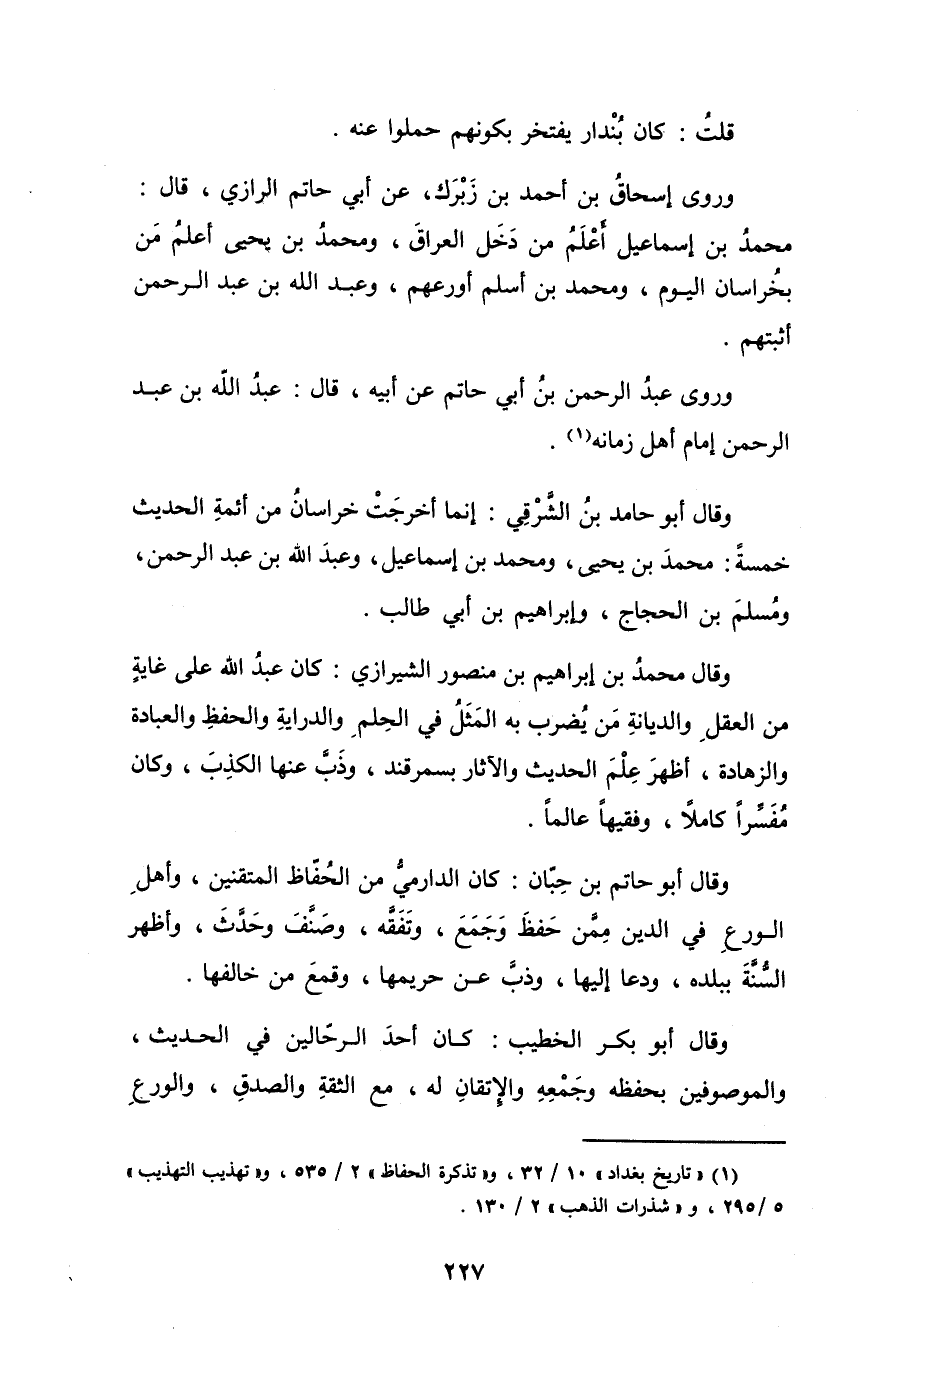 قلتُ : كان بُنْدار يفتخر بكونهم حملوا عنه .
وروى إسحاقُ بن أحمد بن زَبْرَك، عن أبي حاتم الرازي ، قال :
محمدُ بن إسماعيل أَعْلَمُ من دَخَل العراقَ ، ومحمدُ بن يحيى أعلمُ مَن
بخُراسان اليـوم ، ومحمد بن أسلم أورعهم ، وعبـد الله بن عبد الـرحمن
أثبتهم .
وروى عبدُ الرحمن بنُ أبي حاتم عن أبيه ، قال : عبدُ اللّه بن عبـد
الرحمن إمام أهل زمانه(١) .
وقال أبو حامد بنُ الشَّرْقي : إنما أخرجَتْ خراسانُ من أئمةِ الحديث
خمسةً : محمدَ بن يحيى ، ومحمد بن إسماعيل، وعبدَ الله بن عبد الرحمن،
ومُسلمَ بن الحجاج ، وإبراهيم بن أبي طالب .
وقال محمدُ بن إبراهيم بن منصور الشيرازي : كان عبدُ الله على غايةٍ
من العقلِ والديانةِ مَن يُضرب به المَثَلُ في الحِلمِ والدرايةِ والحفظِ والعبادة
والزهادة ، أظهرَ عِلْمَ الحديث والآثار بسمرقند ، وذَبَّ عنها الكذِبَ ، وكان
مُفَسِّراً كاملاً ، وفقيهاً عالماً .
وقال أبو حاتم بن حِبّان : كان الدارميُّ من الحُفّاظ المتقنين ، وأهلِ
الـورعِ في الدين مِمَّن حَفظَ وَجَمَعَ ، وتَفَقَّه ، وصَنَّفَ وحَدَّثَ ، وأظهر
السُّنَّةَ ببلده ، ودعا إليها ، وذبَّ عـن حريمها ، وقمعَ من خالفها .
وقال أبو بكـر الخطيب : كـان أحدَ الـرحّالين في الحـديث ،
والموصوفين بحفظه وجَمْعِهِ والإِتقانِ له ، مع الثقةِ والصدقِ ، والورعِ
(١) « تاريخ بغداد » ١٠ / ٣٢ ، و« تذكرة الحفاظ » ٢ / ٥٣٥ ، و« تهذيب التهذيب »
٥ /٢٩٥ ، و « شذرات الذهب » ٢ / ١٣٠ .
٢٢٧